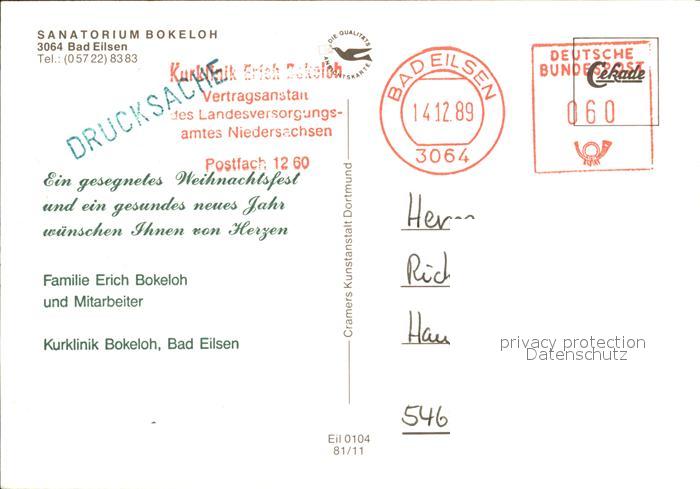 SANATORIUM BOKELOH
3064 Bad Eilsen
Tel.: (05722) 8383
DIE QUALITÄTS
ANSICHTSKARTE
Kurklinik Erich Bokeloh
Vertragsanstalt
des Landesversorgungs-
amtes Niedersachsen
Postfach 12 60
DRUCKSACHE
BAD EILSEN
14.12.89
3064
DEUTSCHE
BUNDESPOST
Cekade
060
Ein gesegnetes Weihnachtsfest
und ein gesundes neues Jahr
wünschen Ihnen von Herzen
Familie Erich Bokeloh
und Mitarbeiter
Kurklinik Bokeloh, Bad Eilsen
Cramers Kunstanstalt Dortmund
Herrn
546
privacy protection
Datenschutz
Eil 0104
81/11